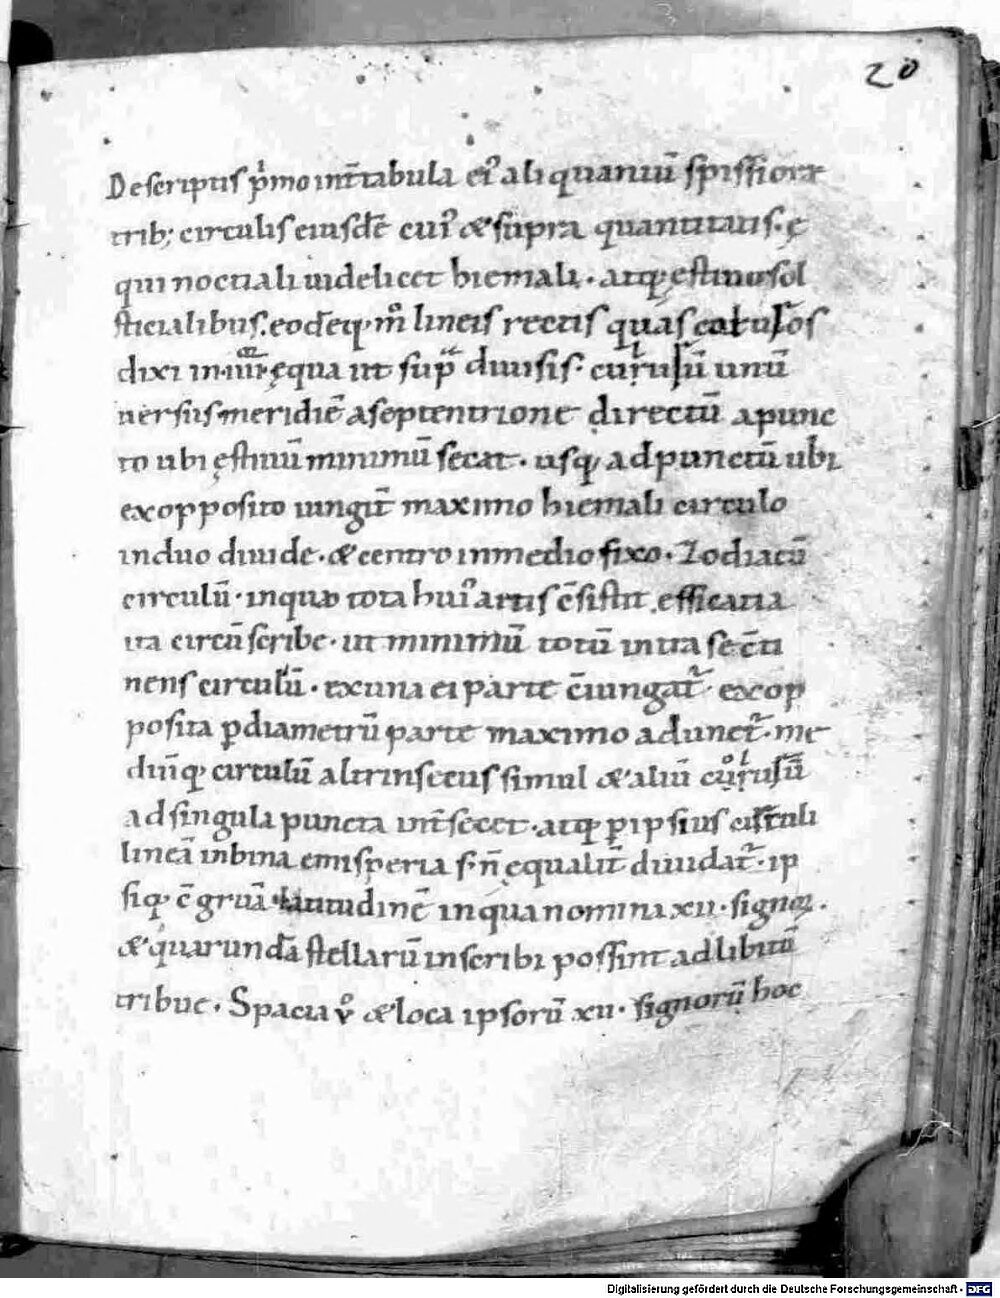 20
Descriptis p̓mo int̄tabula ei᾿ aliquantū spissiore
trib; circulis eiusdē cui᾿ & supra quantitatis. ę
quinoctiali uidelicet hiemali. atq; ęstiuo sol
sticialibus. eodēq; m̊ lineis rectis quas
dixi in.iiii. ęqua ut sup diuisis.  unū
uersus meridiē aseptentrione directū apunc
to ubi ęstiuū minimū secat. usq; adpunctū ubi
exopposito iungit̄ maximo hiemali circulo
induo diuide. & centro inmedio fixo. Zodiacū
circulū. inquo tota hui᾿ artis c̄sistit efficatia
ita circūscribe. ut minimū totū intra se c̄ti
nens circulū. exuna ei parte c̄iungat᷑. exop
posita ꝑdiametrū parte maximo adunct᷑. me
diūq; circulū altrinsecus simul & aliū
adsingula puncta int̄secet. atq; ꝑipsius circuli
lineā inbina emisperia s. n̄ ęqualit̄ diuidat᷑. ip
siq; c̄gruā latitudinē inqua nomina xii. signoꝝ.
& quarundā stellarū inscribi possint adlibitū
tribue. Spacia v̊ & loca ipsorū xii. signorū hoc
Digitalisierung gefördert durch die Deutsche Forschungsgemeinschaft - DFG